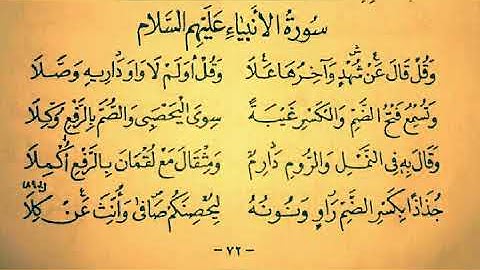 سُورَةُ الأَنْبِيَاءِ عَلَيْهِمُ السَّلَام
وَقُلْ قَالَ عَنْ شُهْدٍ وَآخِرُهَا عَلَا وَقُلْ أَوَلَمْ لَا وَاوَ دَارِيهِ وَصَّلَا
وَتُسْمِعُ فَتْحُ الضَّمِّ وَالْكَسْرِ غَيْبَةً سِوَى الْيَحْصَبِي وَالصُّمَّ بِالرَّفْعِ وُكِّلَا
وَقَالَ بِهِ فِي النَّمْلِ وَالرُّومِ دَارِمٌ وَمِثْقَالَ مَعْ لُقْمَانَ بِالرَّفْعِ أُكْمِلَا
جُذَاذًا بِكَسْرِ الضَّمِّ رَاوٍ وَنُونُهُ لِيُحْصِنَكُمْ صَافَى وَأُنِّثَ عَنْ كِلَا
- ٧٢ -